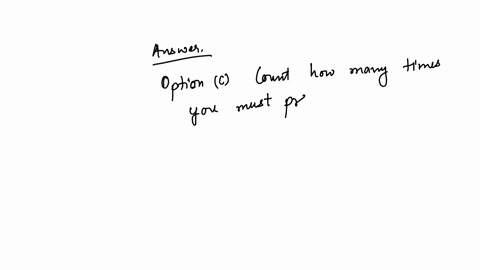 Answer.
Option (c) Count how many times
you must pr